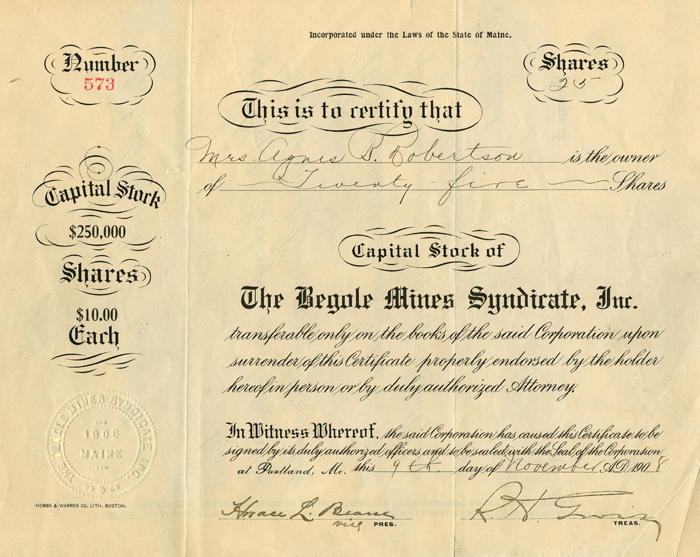 Incorporated under the Laws of the State of Maine.
Number
573
Shares
25
This is to certify that
Mrs. Agnes B. Robertson is the owner
of Twenty five Shares
Capital Stock
$250,000
Shares
$10.00
Each
Capital Stock of
The Begole Mines Syndicate, Inc.
transferable only on the books of the said Corporation upon
surrender of this Certificate properly endorsed by the holder
hereof in person or by duly authorized Attorney.
In Witness Whereof, the said Corporation has caused this Certificate to be
signed by its duly authorized officers and to be sealed with the Seal of the Corporation
at Portland, Me. this 9th day of November A.D. 1908
THE BEGOLE MINES SYNDICATE, INC.
1906
MAINE
HOBBS & WARREN CO. LITH. BOSTON.
Horace L.
vice PRES.
R. H.
TREAS.